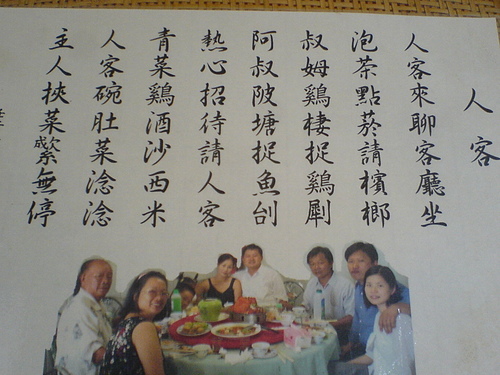 人客
人客來聊客廳坐
泡茶點菸請檳榔
叔姆鷄棲捉鷄㓾
阿叔陂塘捉魚刣
熱心招待請人客
青菜鷄酒沙西米
人客碗肚菜淰淰
主人挾菜無停